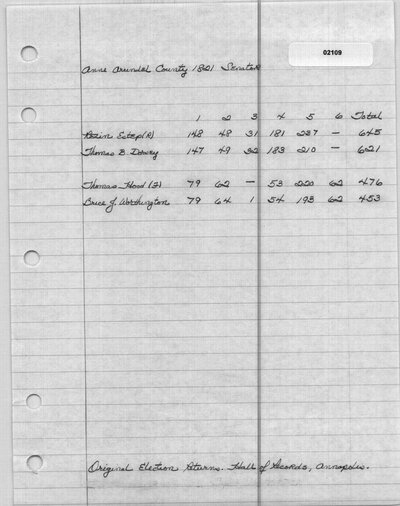 02109
Anne Arundel County 1821 Senator
1 2 3 4 5 6 Total
Rezin Estep (R) 148 48 31 181 237 — 645
Thomas B. Dorsey 147 49 32 183 210 — 621
Thomas Hood (F) 79 62 — 53 220 62 476
Brice J. Worthington 79 64 1 54 193 62 453
Original Election Returns. Hall of Records, Annapolis.